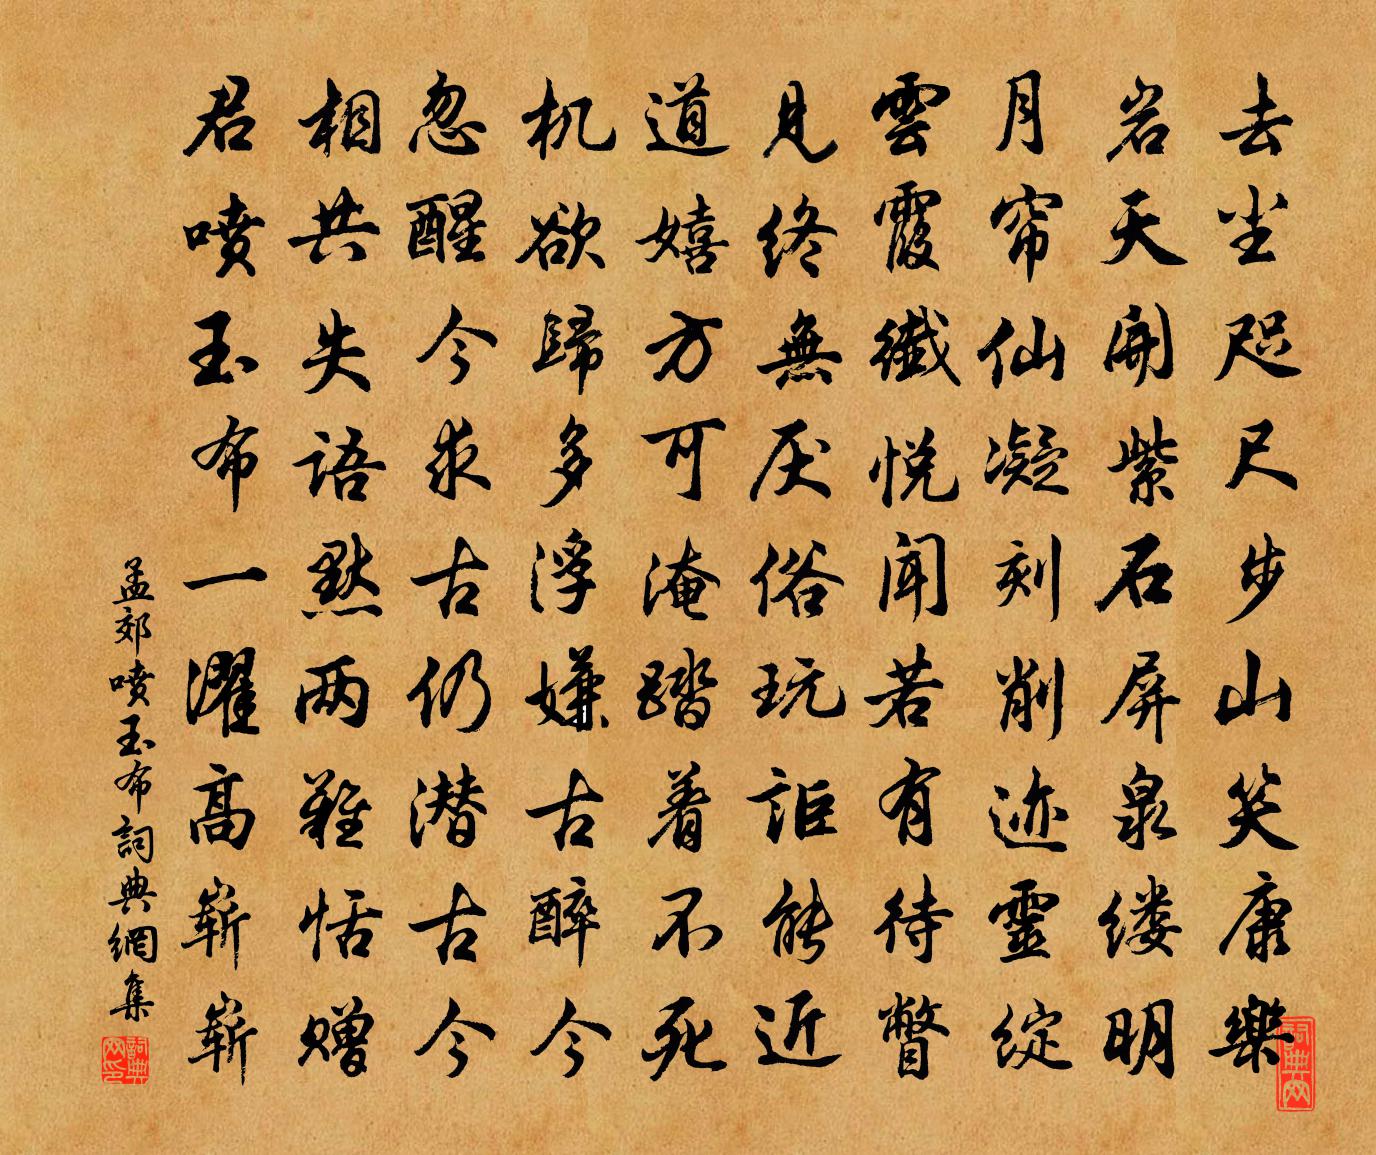 去尘咫尺步山笑康樂
岩天開紫石屏泉缕明
月帘仙凝刻削迹靈綻
雲霞纖悦闻若有待瞥
見終無厌俗玩詎能近
道嬉方可淹踏着不死
机欲歸多浮嫌古醉今
忽醒今求古仍潜古今
相共失語默两難恬赠
君喷玉布一濯高嶄嶄
孟郊喷玉布詞典網集
詞典网
詞典网印